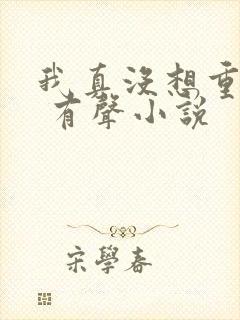 我真没想重
有聲小説
宋學春